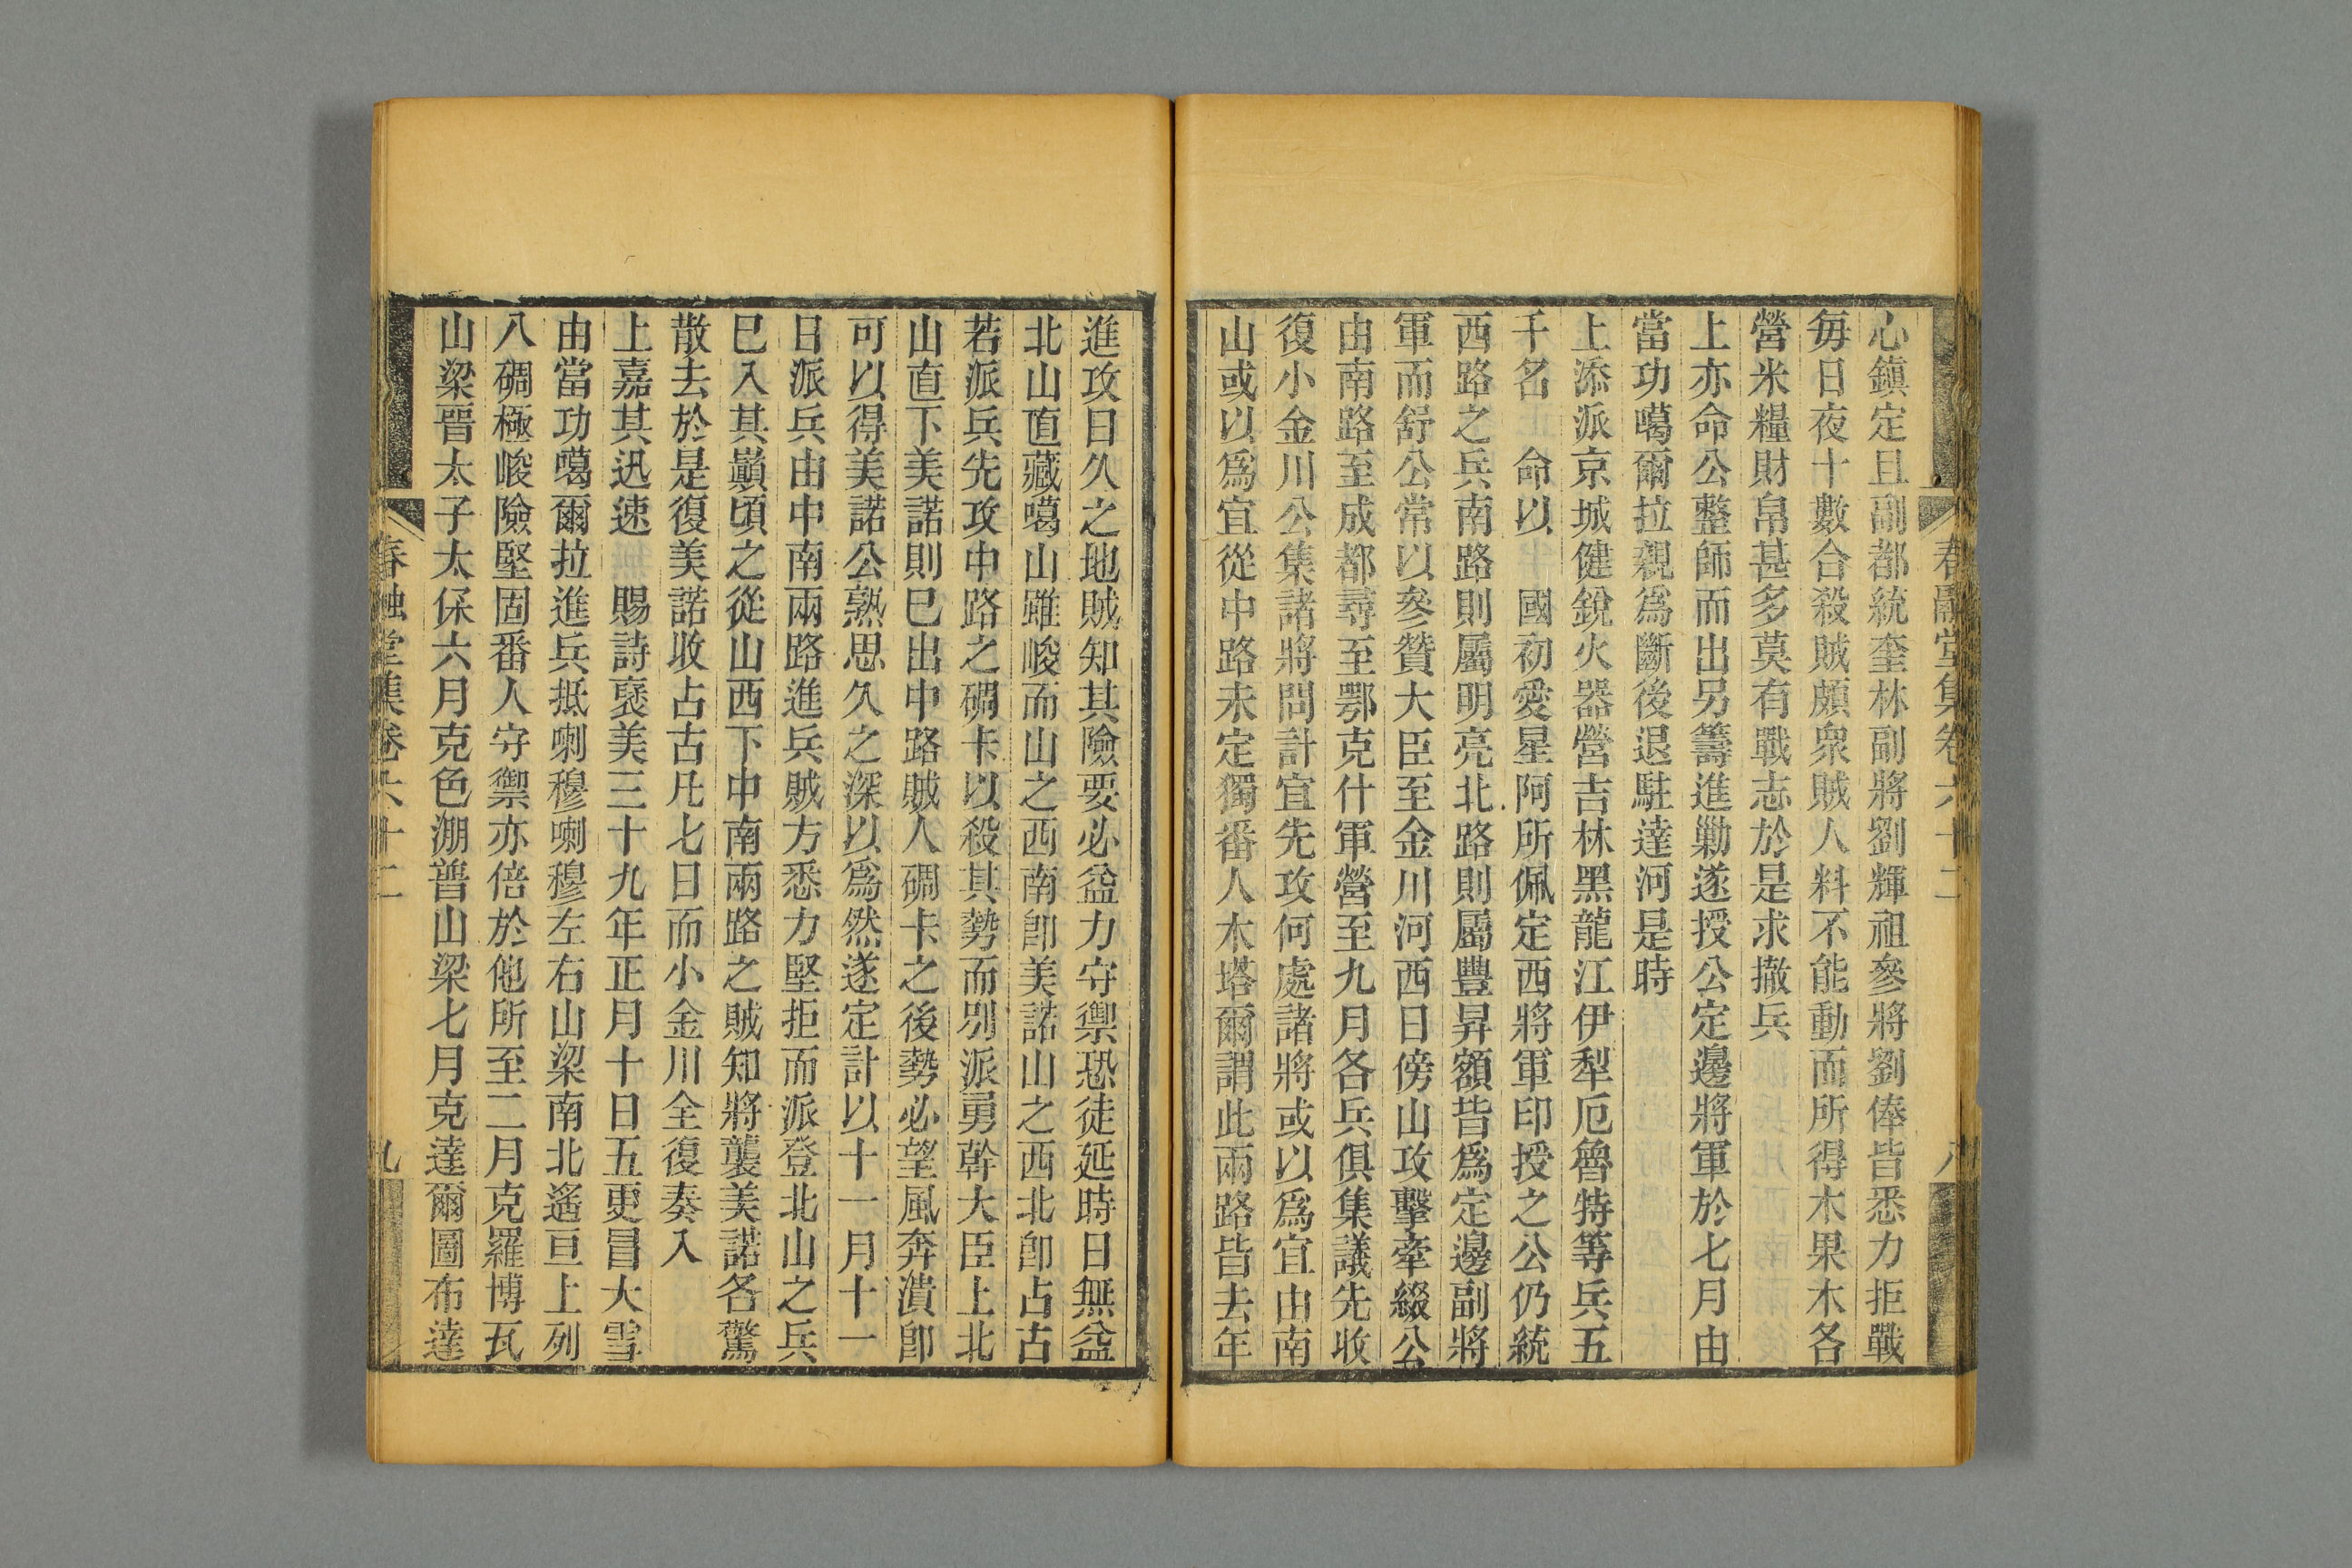 春融堂集卷六十二
八
心鎮定且副都統奎林副將劉輝祖參將劉俸皆悉力拒戰
每日夜十數合殺賊頗衆賊人料不能動而所得木果木各
營米糧財帛甚多莫有戰志於是求撤兵
上亦命公整師而出另籌進勦遂授公定邊將軍於七月由
當功噶爾拉親爲斷後退駐達河是時
上添派京城健銳火器營吉林黑龍江伊犁厄魯特等兵五
千名 命以 國初愛星阿所佩定西將軍印授之公仍統
西路之兵南路則屬明亮北路則屬豐昇額皆爲定邊副將
軍而舒公常以參贊大臣至金川河西日傍山攻擊牽綴公
由南路至成都尋至鄂克什軍營至九月各兵俱集議先收
復小金川公集諸將問計宜先攻何處諸將或以爲宜由南
山或以爲宜從中路未定獨番人木塔爾謂此兩路皆去年
進攻日久之地賊知其險要必益力守禦恐徒延時日無益
北山直藏噶山雖峻而山之西南卽美諾山之西北卽占古
若派兵先攻中路之碉卡以殺其勢而別派勇幹大臣上北
山直下美諾則已出中路賊人碉卡之後勢必望風奔潰卽
可以得美諾公熟思久之深以爲然遂定計以十一月十一
日派兵由中南兩路進兵賊方悉力堅拒而派登北山之兵
已入其巔頃之從山西下中南兩路之賊知將襲美諾各驚
散去於是復美諾收占古凡七日而小金川全復奏入
上嘉其迅速 賜詩褒美三十九年正月十日五更冒大雪
由當功噶爾拉進兵抵喇穆喇穆左右山梁南北遙亘上列
八碉極峻險堅固番人守禦亦倍於他所至二月克羅博瓦
山梁晉太子太保六月克色淜普山梁七月克達爾圖布達
春融堂集卷六十二
九